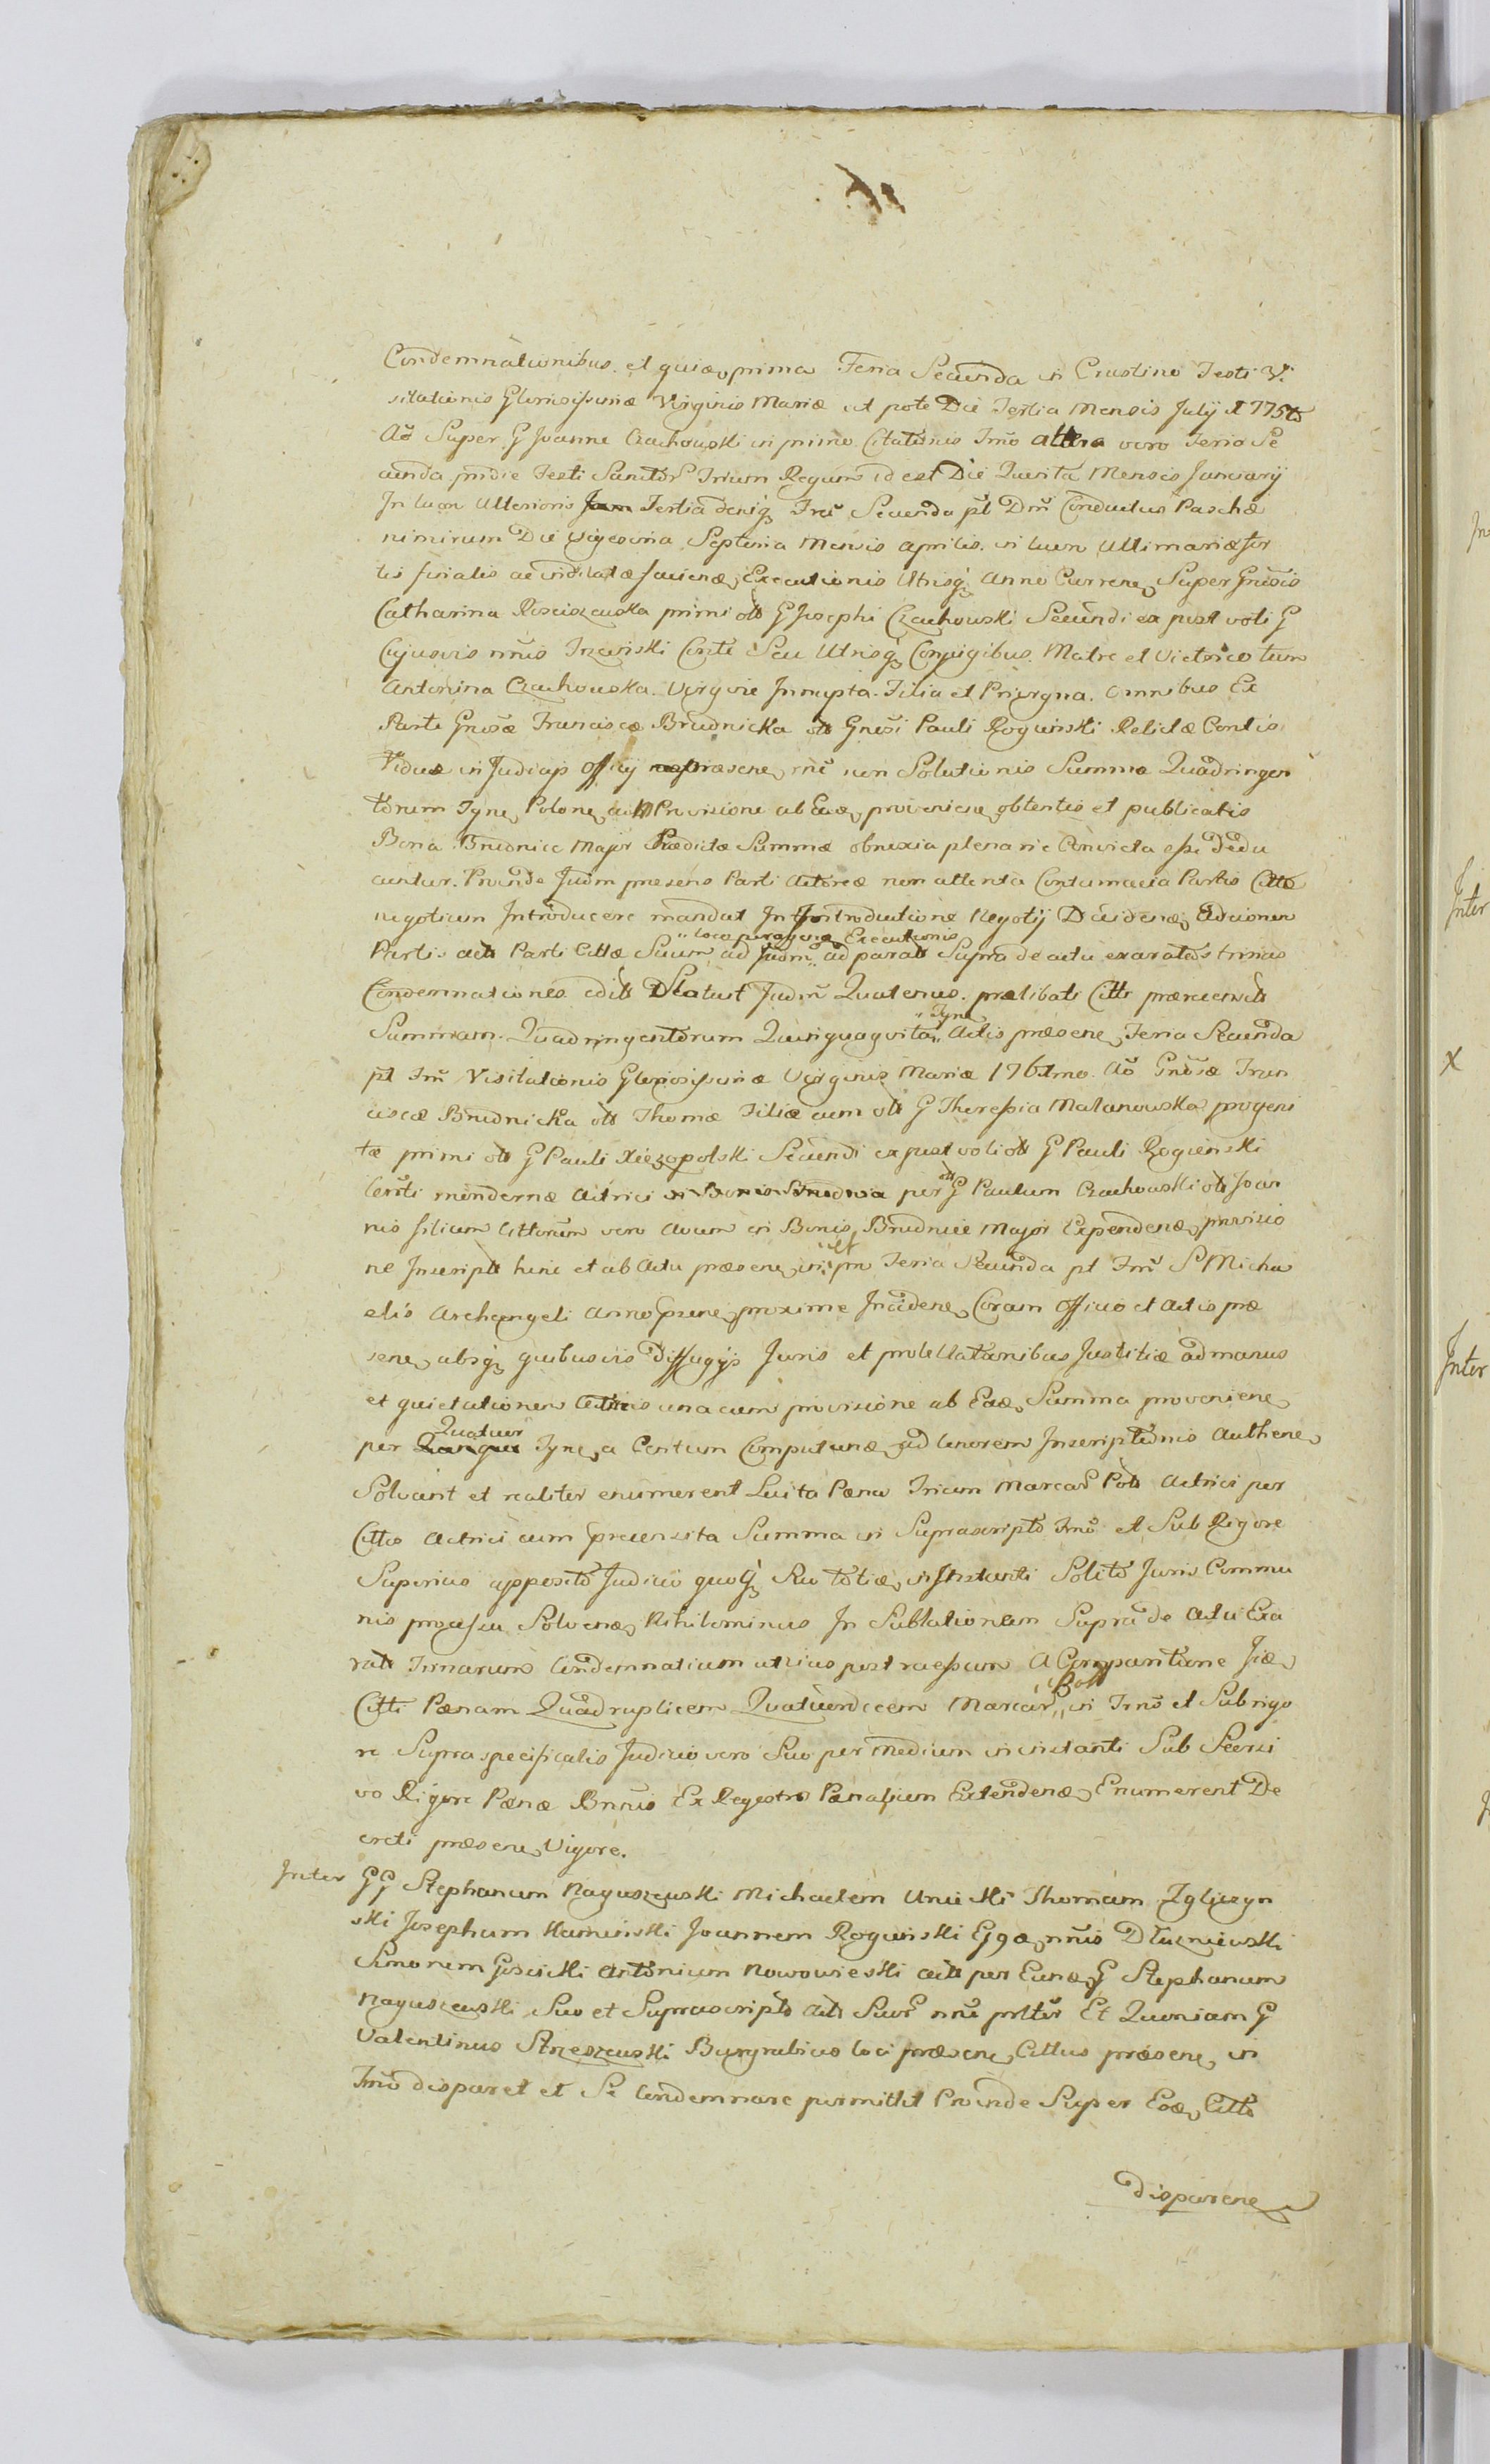 Condemnationibus et quia prima Feria Secunda in Crastino Festi Vi
sitationis Gloriosissimæ Virginis Mariæ ut pote Die Tertia Mensis Julij 1775to
Aõ Super G Joanne Czachowski in primo Citationis Trno altera vero Feria Se
cunda pridie Festi Sanctor Trium Regum id est Die Quinta Mensis Januarij
In lucrũ Ulterioris Tertia deniq Feria Secunda pt Dm̃ Conductus Paschæ
nimirum Die vigesima Septima Mensis Aprilis in lucrum Ultimariæ for
tis finalis ac indilatæ faciendæ Executionis Utrisq Anni Curren Super Gnosis
Catharina Rosciszewska primi olt G Josephi Czachowski Secundi ex post voti G
Cujusvis nnis Trzcinski Conste Seu Utrisq Conjugibus Matre et Victrico tum
Antonina Czachowska Virgine Innupta Filia et Privigna omnibus Ex
Parte Gnosæ Franciscæ Brudnicka olt Gnosi Pauli Rogiński Relictæ Contis
Viduæ in Judicijs Officij præsen rne non Solutionis Summæ Quadringen
torum Tyne Polone cum Provisione ab Eade provenien obtentis et publicatis
Bona Brudnice Major Prædictæ Summæ obnoxia plenarie Convicta esse Dedu
cuntur. Proinde Judm præsens Parti Actoreæ non attenta Contumacia Partis Cittæ
negotium Introducere mandat In Introductione Negotij Decidendæ Adcionem
"loco peragendæ Executionis
Partis actt Parti Cittæ Suum ad Judm ad parat Supra de actu exaratas trinas
Condemnationes edit Statuit Judm Quatenus prælibati Citti præcensit
"Tyne
Summam Quadringentorum Quinquaginta Actis præsene Feria Secunda
pt Fm̃ Visitationis Gloriosissimæ Virginis Mariæ 1761mo Aõ Gnosæ Fran
ciscæ Brudnicka olt Thomæ Filiæ cum olt G Theressia Malanowska progeni
tæ primi olt G Pauli Xiężopolski Secundi ex post voti olt G Pauli Rogienski
Consti modernæ Actrici per olt G Paulum Czachowski olt Joan
nis filium Cittorum vero avum in Bonis Brudnice Major Expendendæ provisio
ne Inscript hinc et ab Actu præsene in pn Feria Secunda pt Fm̃ S Micha
elis Archangeli Anno præsene proxime Inciden Coram Officio et Actis præ
sene absq quibusvis Diffugijs Juris et protestationibus Justitiæ ad manus
et quietationem Actricis una cum provisione ab Eade Summa proveniene
Quatuor
per Tyne a Centum Computandæ ad tenorem Inscriptionis Authene
Solvant et realiter enumerent Luita Pæna Trium Marcar Polt Actrici per
Cittos Actrici cum præcensita Summa in Suprascripto Trno et Sub Rigore
Superius apposito Judicio quoq Suo totiæ instanti Solito Juris Commu
nis processu Solvendæ Nihilominus In Sublationem Supra de Actu Exa
rat Trinarum Condemnatium utrius post Comparitione Jidæ
Polt
Citti Pænam Quadruplicem Quatuordecem Marcar in Trno et Sub rigo
re Supra specificatis Judicio vero Suo per medium in instanti Sub Seersi
vo Rigore Pænæ Bnnis Ex Regestro Pænalium Extendendæ Enumerent De
creti præsene Vigore.
Inter GG Stephanum Naguszewski Michaelem Unicki Thomam Zgliczyn
ski Josephum Kaminski Joannem Rogiński Ejqæ nnis Dłużniewski
Simonem Gosicki Antonium Nowowieski actt per Eunde G Stephanum
Naguszewski Suo et Suprascripto Actt Suor nne prltor Et Quoniam G
Valentinus Strzeszewski Burgrabius loci præsene Cittus præsene in
Trno disparet et Se Condemnare permittit Proinde Super Eode Citto
disparene